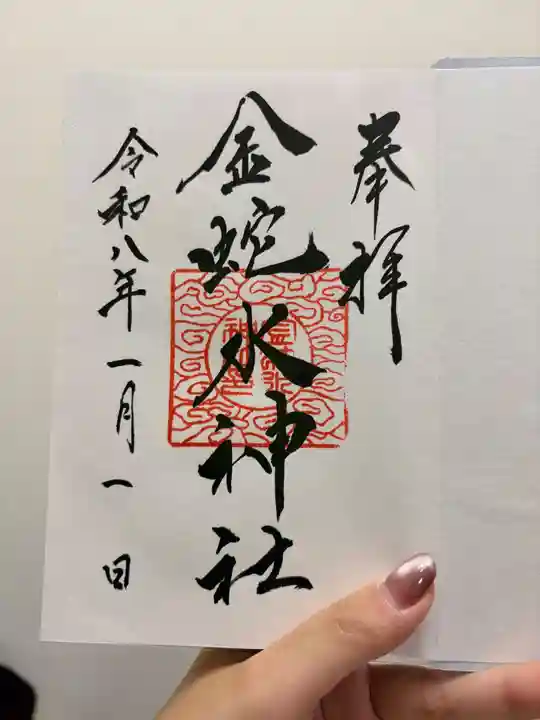 奉拝
金蛇水神社
令和八年一月一日